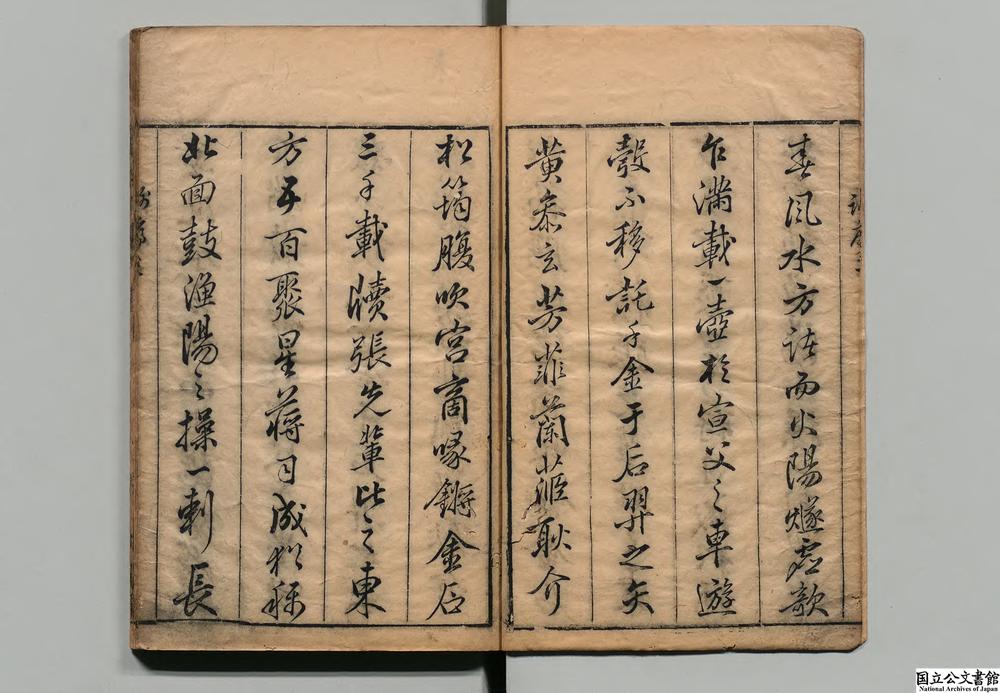 春風水方諸而火陽燧虛歌
乍滿載一壺於宣父之車遊
彀不移託千金于后羿之矢
黄叅玄芳菲蘭茝耿介
松筠腹吹宮商喙鏘金石
三千載牘張先輩比之東
方五百聚星蔣司成猶稱
北面鼓漁陽之操一刺長
国立公文書館
National Archives of Japan